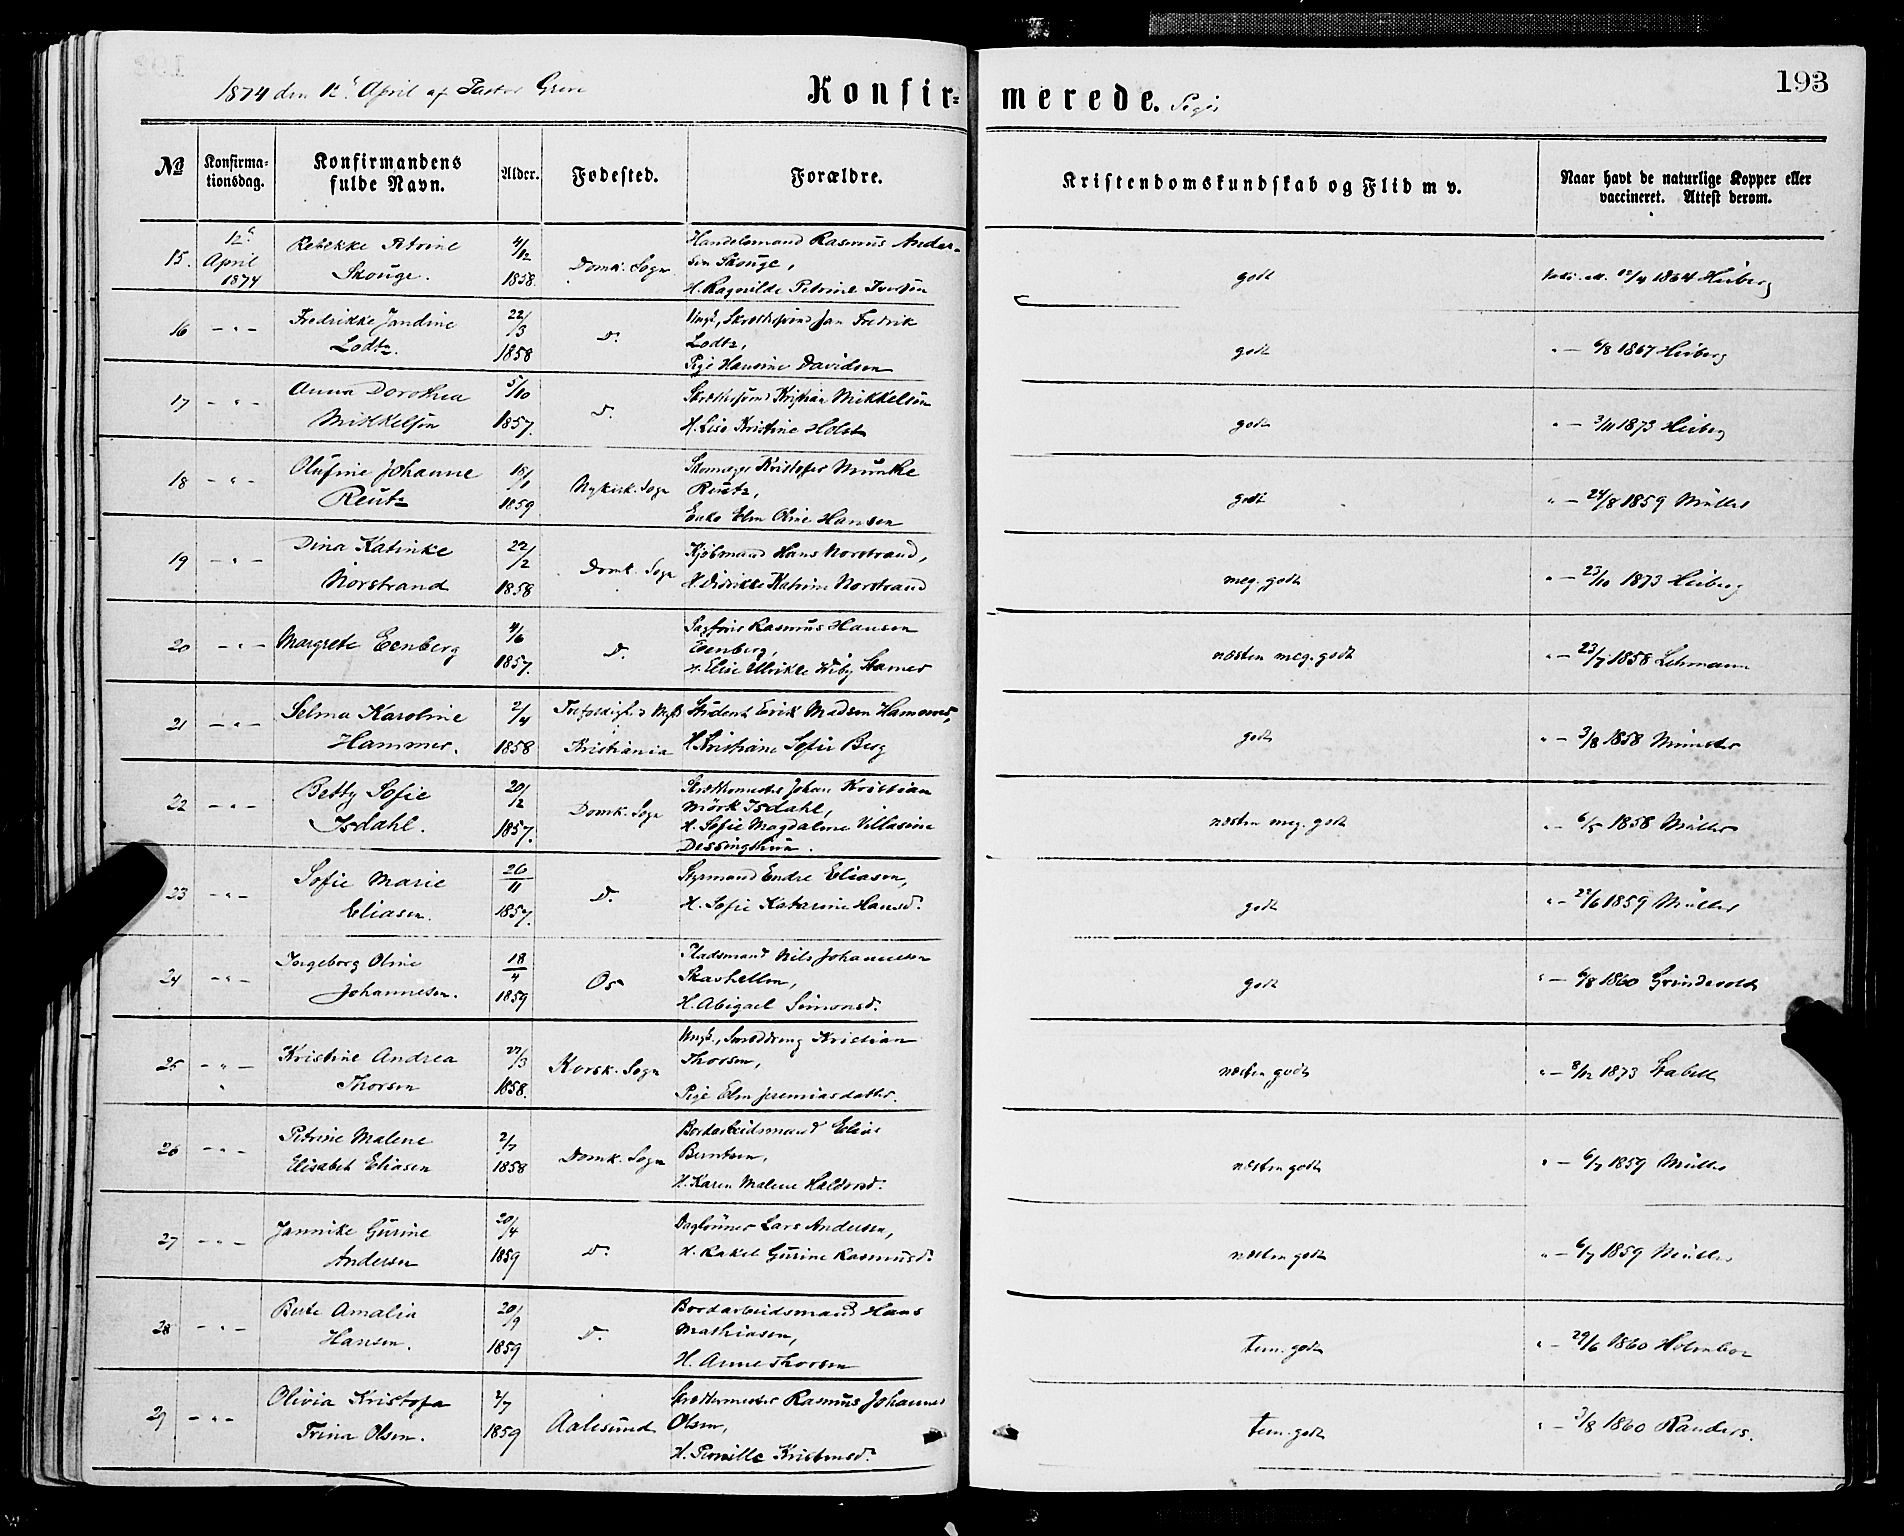 1874 den 12te April af Pastor Greve
Konfir-
merede. Piger
193
№
Konfirma-
tionsdag.
Konfirmandens
fulde Navn.
Alder.
Fødested.
Forældre.
Kristendomskundskab og Flid m v.
Naar havt de naturlige Kopper eller
vaccineret. Attest derom.
15. 12te April 1874
Rebekke Petrine
Skouge.
4/12 1858.
Domk. Sogn
Handelsmand Rasmus Ander-
sen Skouge,
H. Ragnilde Petrine Iversen
godt
12/4 1864 Heiberg
16 - " -
Fredrikke Jandine
Lodtz.
22/3 1858
D.
Ungk., Skræddersvend Jan Fredrik
Lodtz,
Pige Hansine Davidsen
godt
" - 6/8 1867 Heiberg
17 - " -
Anna Dorothea
Mikkelsen
5/10 1857.
D.
Skræddersvend Kristian Mikkelsen
H. Lise Kristine Holst
godt
" - 3/11 1873 Heiberg
18 - " -
Olufine Johanne
Reutz
1859
Nykirk. Sogn
Skomager Kristofer Munthe
Reutz,
Enke Elen Oline Hansen
godt
" - 24/8 1859 Müller
19 - " -
Dina Katinke
Norstrand
22/2 1858
Domk. Sogn
Kjøbmand Hans Norstrand,
H. Didrikke Katrine Norstrand
meg. godt
" - 23/10 1873 Heiberg
20 - " -
Margrete Eenberg
4/6 1857.
D.
Sagfører Rasmus Hansen
Eenberg,
H. Elise Ulrikke Wiby Stamer
næsten meg. godt
" - 23/7 1858 Lehmann
21 - " -
Selma Karoline
Hammer.
2/4 1858
Trefoldigheds Mgh
Kristiania
Student Erik Madsen Hammer,
H. Kristiane Sofie Berg
godt
" - 3/8 1858 Münster
22 - " -
Betty Sofie
Isdahl.
20/2 1857.
Domk. Sogn
Skræddermester Johan Kristian
Mørk Isdahl,
H. Sofie Magdalene Villasine
Dessingthun.
næsten meg. godt
" - 6/5 1858 Müller
23 - " -
Sofie Marie
Eliasen.
26/11 1857.
D.
Styrmand Endre Eliasen,
H. Sofie Katarine Hansd.
godt
" - 22/6 1859 Müller
24 - " -
Ingeborg Oline
Johannesen.
18/4 1859
Os
Pladsmand Nils Johannesen
Skarhellen,
H. Abigael Simonsd.
godt
" - 6/8 1860 Grindevold
25 - " -
Kristine Andrea
Thorsen
27/3 1858.
Korsk. Sogn
Ungk., Smeddreng Kristian
Thorsen,
Pige Elen Jeremiasdatter.
næsten godt
" - 8/12 1873 Stabell
26 - " -
Petrine Malene
Elisabet Eliasen
2/7 1858
Domk. Sogn
Bordarbeidsmand Elias
Berntsen,
H. Karen Malene Haldorsd.
næsten godt
" - 6/7 1859 Müller
27 - " -
Jannike Gurine
Andersen
20/4 1859
D.
Daglønner Lars Andersen,
H. Rakel Gurine Rasmusd.
næsten godt
" - 6/7 1859 Müller
28 - " -
Berte Amalia
Hansen.
20/9 1859
D.
Bordarbeidsmand Hans
Mathiasen,
H. Anne Thorsen
tem. godt
" - 29/6 1860 Holmboe
29 - " -
Olivia Kristofa
Trina Olsen.
2/7 1859
Aalesund
Skræddermester Rasmus Johannes
Olsen,
H. Pernille Kristensd.
tem. godt
" - 3/8 1860 Randers.